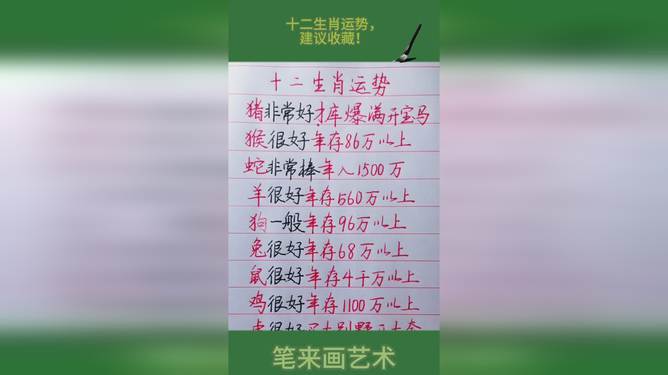 十二生肖运势，
建议收藏！
十二生肖运势
猪非常好才库爆满开宝马
猴很好年存86万以上
蛇非常棒年入1500万
羊很好年存560万以上
狗一般年存96万以上
兔很好年存68万以上
鼠很好年存4千万以上
鸡很好年存1100万以上
虎很好买大别野
笔来画艺术